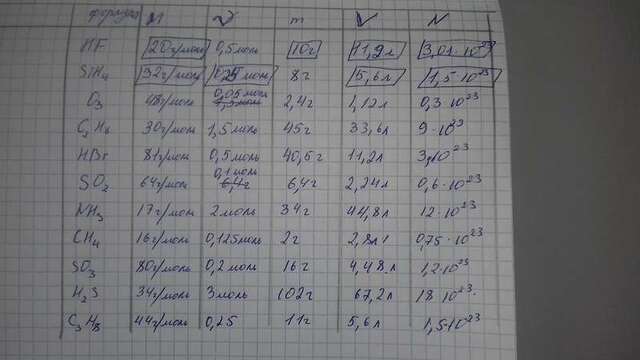 формула M ν m V N
HF 20г/моль 0,5моль 10г 11,2л 3,01·10²³
SiH₄ 32г/моль 0,25моль 8г 5,6л 1,5·10²³
O₃ 48г/моль 0,05моль 2,4г 1,12л 0,3·10²³
C₂H₆ 30г/моль 1,5моль 45г 33,6л 9·10²³
HBr 81г/моль 0,5моль 40,5г 11,2л 3·10²³
SO₂ 64г/моль 0,1моль 6,4г 2,24л 0,6·10²³
NH₃ 17г/моль 2моль 34г 44,8л 12·10²³
CH₄ 16г/моль 0,125моль 2г 2,8л 0,75·10²³
SO₃ 80г/моль 0,2моль 16г 4,48л 1,2·10²³
H₂S 34г/моль 3моль 102г 67,2л 18·10²³
C₃H₈ 44г/моль 0,25 11г 5,6л 1,5·10²³